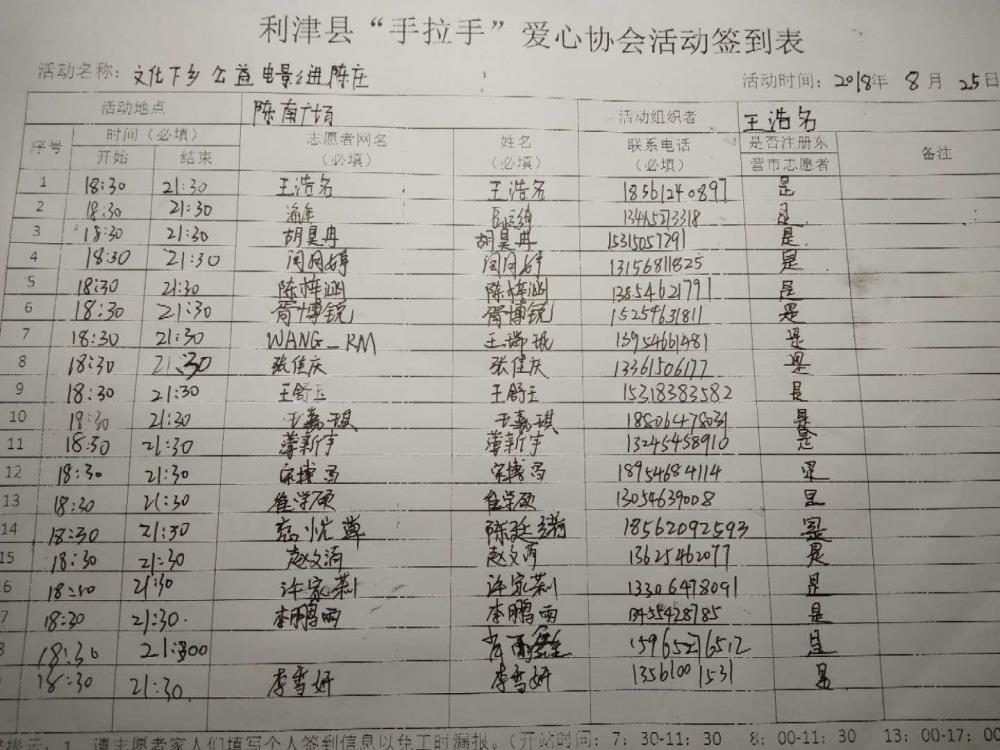 利津县“手拉手”爱心协会活动签到表
活动名称：文化下乡 公益电影走进陈庄 活动时间：2018年 8月 25日
活动地点 陈南广场 活动组织者 王浩名
序号 时间（必填） 志愿者网名 姓名 联系电话 是否注册东 备注
开始 结束 （必填） （必填） （必填） 营市志愿者
1 18:30 21:30 王浩名 王浩名 18561240897 是
2 18:30 21:30 13465273318 是
3 18:30 21:30 胡昊冉 胡昊冉 15315057291 是
4 18:30 21:30 闫月婷 闫月婷 13156811825 是
5 18:30 21:30 陈梓涵 陈梓涵 13854621791 是
6 18:30 21:30 胥博锐 胥博锐 15254631811 是
7 18:30 21:30 WANG_RM 王瑞珉 13954661481 是
8 18:30 21:30 张佳庆 张佳庆 13361506177 是
9 18:30 21:30 王舒玉 王舒玉 15318383582 是
10 18:30 21:30 王嘉琪 王嘉琪 是
11 18:30 21:30 薄新宇 薄新宇 13245458910 是
12 18:30 21:30 宋博 宋博 18954684114 是
13 18:30 21:30 崔学硕 崔学硕 13054639008 是
14 18:30 21:30 陈廷 18562092593 是
15 18:30 21:30 赵文 赵文 13625462077 是
6 18:30 21:30 许家荣 许家荣 13306478091 是
7 18:30 21:30. 李鹏雨 李鹏雨 13455428785 是
8 18:30 15965276512 是
18:30 21:30. 李雪妍 李雪妍 13561001531 是
提示：1、请志愿者家人们填写个人签到信息以免工时漏报。（开站时间：7：30-11：30 8：00-11：30 13：00-17：00